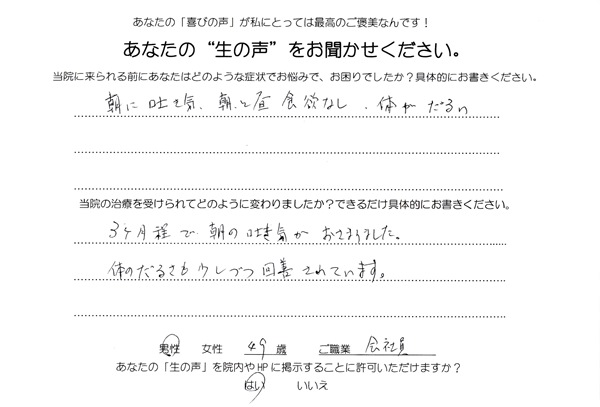 あなたの「喜びの声」が私にとっては最高のご褒美なんです！
あなたの“生の声”をお聞かせください。
当院に来られる前にあなたはどのような症状でお悩みで、お困りでしたか？具体的にお書きください。
朝に吐き気、朝と昼 食欲なし、体がだるい
当院の治療を受けられてどのように変わりましたか？できるだけ具体的にお書きください。
3ヶ月程で、朝の吐き気がおさまりました。
体のだるさも少しづつ回善されています。
男性 女性 49 歳 ご職業 会社員
あなたの「生の声」を院内やHPに掲示することに許可いただけますか？
はい いいえ